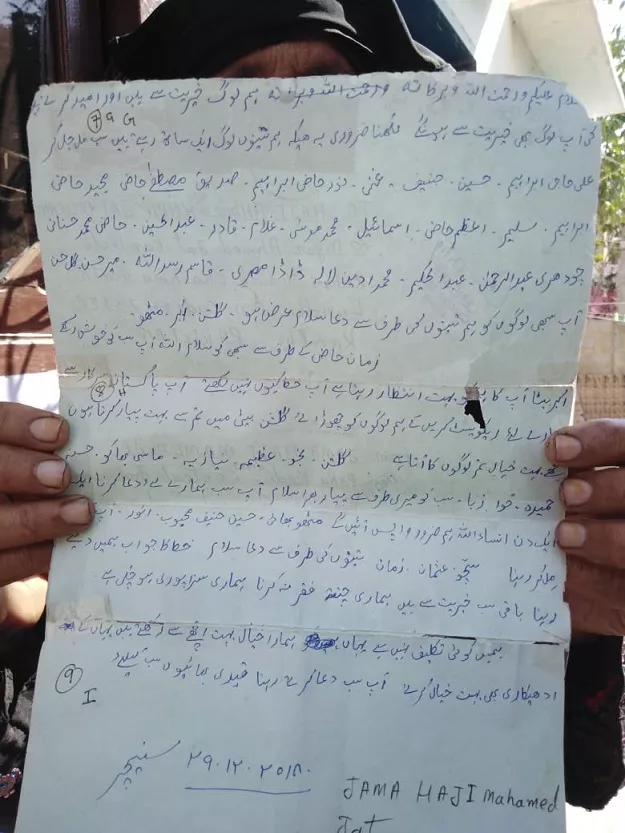 سلام علیکم ورحمت اللہ وبرکاتہ ہم لوگ خیریت سے ہیں اور امید کرتے ہیں
کی آپ لوگ بھی خیریت سے ہیں لکھنا ضروری یہ ہیکہ ہم تینوں لوگ ایک ساتھ رہتے ہیں سب مل جل کر
7 9 G
علی حاجی ابراہیم ۔ حسین ۔ حنیف ۔ غنی ۔ نور حاجی ابراہیم ۔ مصطفےٰ حاجی مجید حاجی
ابراہیم ۔ سلیم ۔ اعظم حاجی ۔ اسماعیل ۔ محمد موسی ۔ غلام ۔ قادر ۔ عبدالحسین ۔ حاجی محمد
چودھری عبدالرحمٰن ۔ عبدالحکیم ۔ محمد امین لالہ ڈاڈا مصری ۔ قاسم رسد اللہ ۔ میر حسن
آپ سبھی لوگوں کو ہم تینوں کی طرف سے دعا سلام عرض ہو ۔ گلشن ۔ اکبر ۔ مٹھو ۔
زمان حاجی کے طرف سے سبھی کو سلام اللہ آپ سب کو خوش رکھے
اکبر بیٹا آپ کا بہت انتظار رہتا ہے آپ خط کیوں نہیں لکھتے آپ پاکستان سرکار سے
8
ہمارے لئے ریکویسٹ کریں کے ہم لوگوں کو چھوڑا لے گلشن بیٹی میں تم سے بہت پیار کرتا ہوں
مجھے بہت خیال تم لوگوں کا آتا ہے گلشن ۔ نجو ۔ عظیمہ ۔ نیاز بی ۔ ماسی
حمیرہ ۔ حوا ۔ زبا ۔ سب کو میری طرف سے پیار بھرا سلام آپ سب ہمارے لئے دعا کرنا
ایک دن انشاء اللہ ہم ضرور واپس آئیں گے مٹھو بھائی ۔ حسین حنیف محبوب ۔ انور ۔ آپ
ملکر رہنا عثمان ۔ زمان تینوں کی طرف سے دعا سلام خط کا جواب ہمیں دیتے
رہنا باقی سب خیریت سے ہیں ہماری فکر نہ کرنا ہماری سزا پوری ہو چکی ہے
ہمیں کوئی تکلیف نہیں ہے یہاں ہمارا خیال بہت اچھے سے رکھتے ہیں یہاں کے
ادھیکاری بھی بہت خیال کرتے آپ سب دعا کرتے رہنا قیدی بھائیوں سب کیلئے
9
I
سنیچر ۲۹۰۱۲۰۲۰۱۸۰
JAMA HAJI Mahamed
Jat